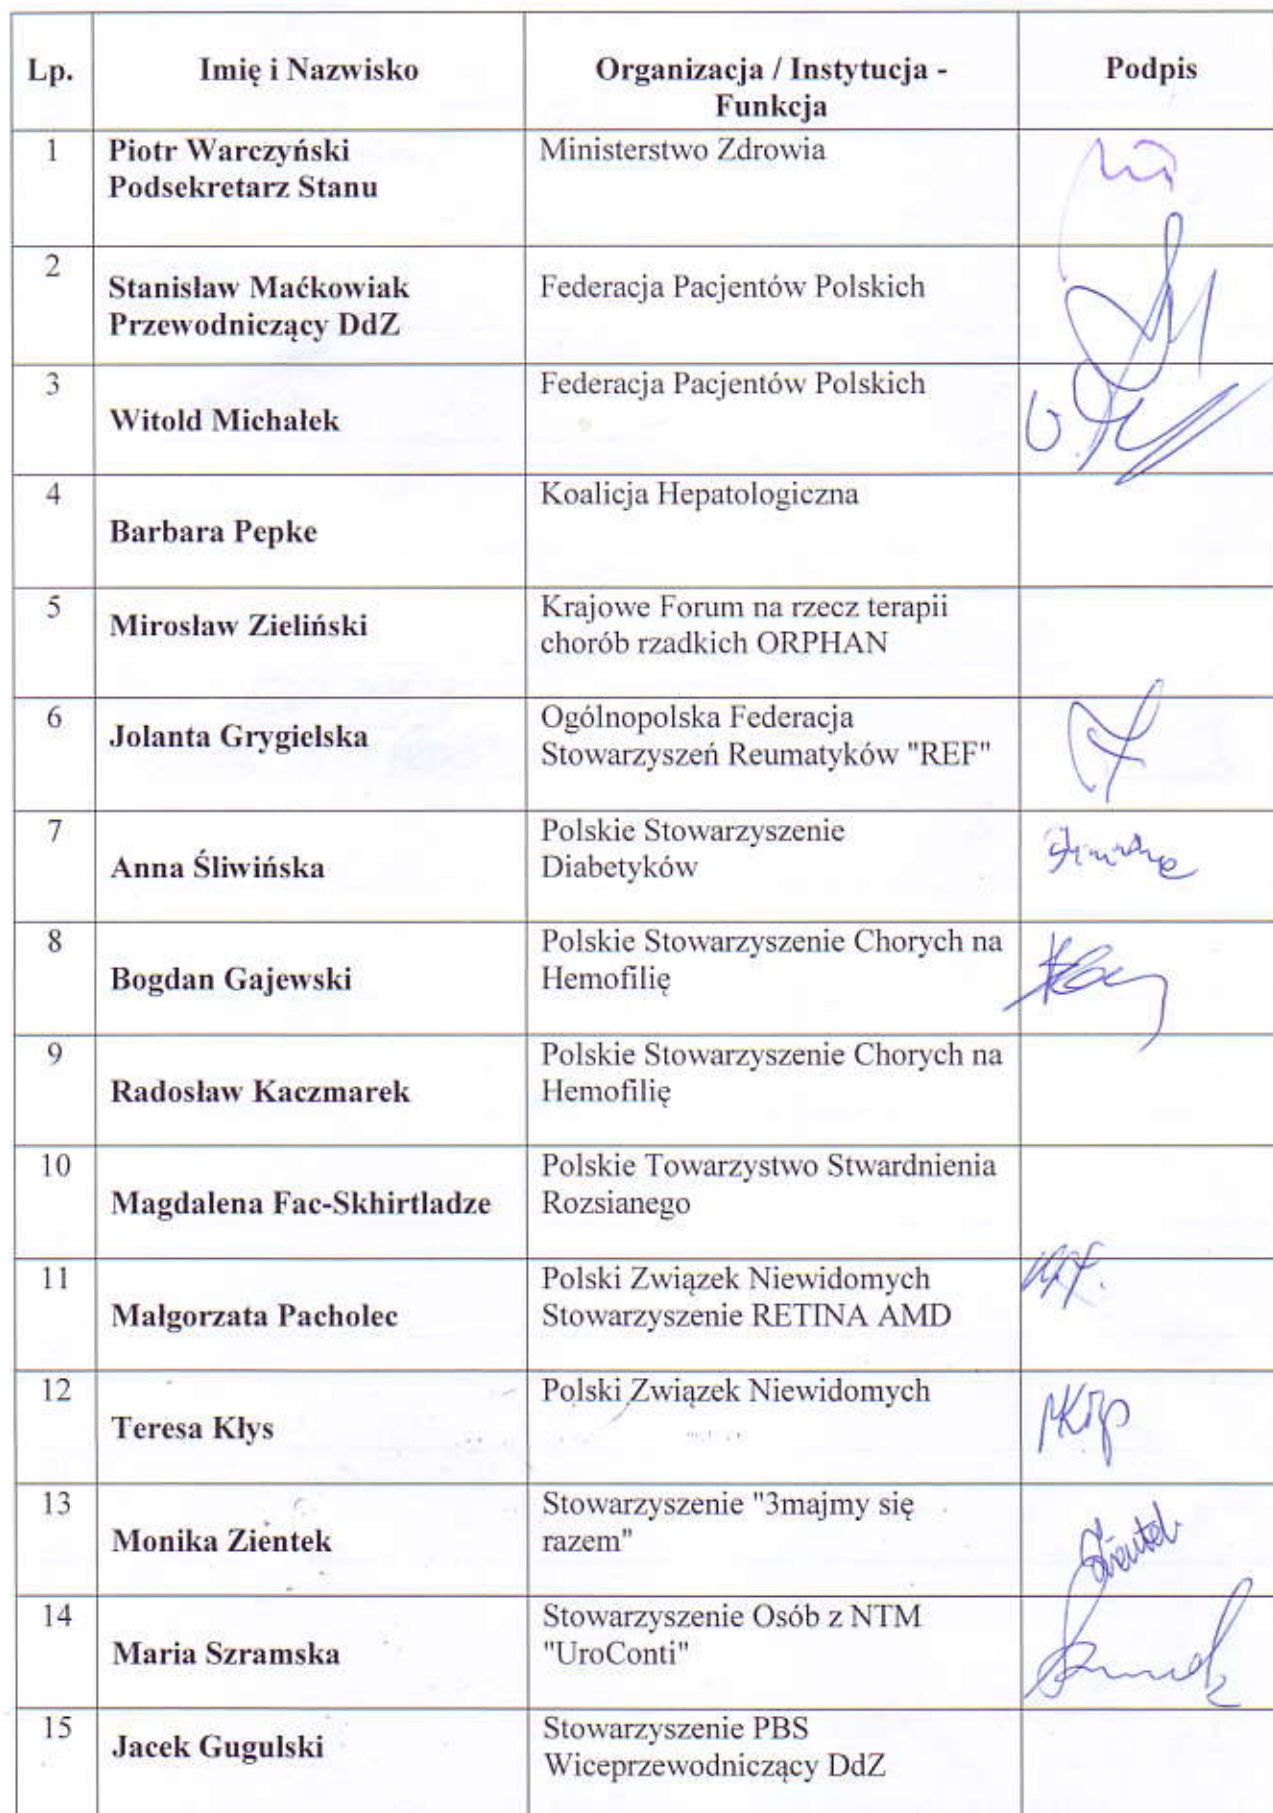 Lp.
Imię i Nazwisko
Organizacja / Instytucja -
Funkcja
Podpis
1
Piotr Warczyński
Podsekretarz Stanu
Ministerstwo Zdrowia
2
Stanisław Maćkowiak
Przewodniczący DdZ
Federacja Pacjentów Polskich
3
Witold Michałek
Federacja Pacjentów Polskich
4
Barbara Pepke
Koalicja Hepatologiczna
5
Mirosław Zieliński
Krajowe Forum na rzecz terapii
chorób rzadkich ORPHAN
6
Jolanta Grygielska
Ogólnopolska Federacja
Stowarzyszeń Reumatyków "REF"
7
Anna Śliwińska
Polskie Stowarzyszenie
Diabetyków
8
Bogdan Gajewski
Polskie Stowarzyszenie Chorych na
Hemofilię
9
Radosław Kaczmarek
Polskie Stowarzyszenie Chorych na
Hemofilię
10
Magdalena Fac-Skhirtladze
Polskie Towarzystwo Stwardnienia
Rozsianego
11
Małgorzata Pacholec
Polski Związek Niewidomych
Stowarzyszenie RETINA AMD
12
Teresa Kłys
Polski Związek Niewidomych
13
Monika Zientek
Stowarzyszenie "3majmy się
razem"
Zientek
14
Maria Szramska
Stowarzyszenie Osób z NTM
"UroConti"
15
Jacek Gugulski
Stowarzyszenie PBS
Wiceprzewodniczący DdZ